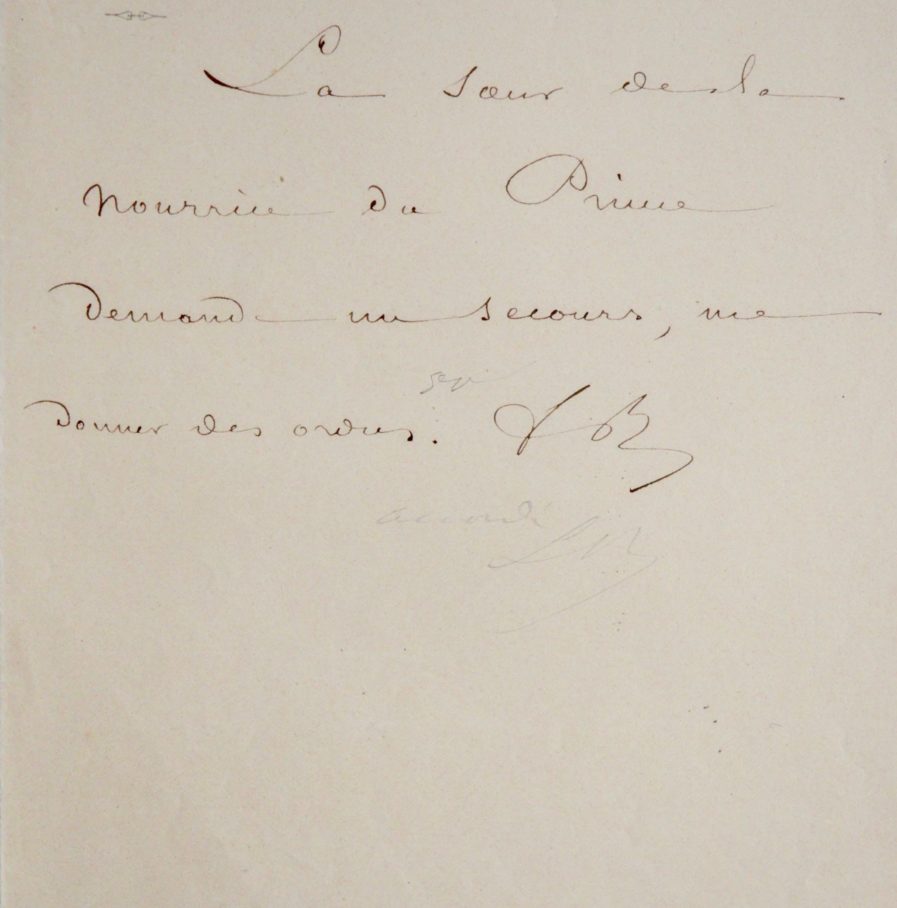 La sœur de la
nourrice du Prince
demande un secours, me
donner des ordres.
accordé